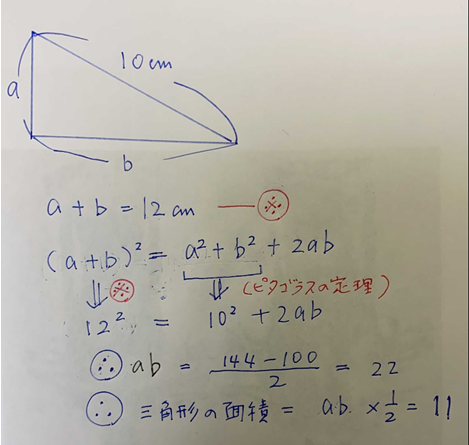 10cm
a
b
a + b = 12 cm ― ※
(a + b)² = a² + b² + 2ab
⇓ ※ ⇓ (ピタゴラスの定理)
12² = 10² + 2ab
∴ ab = (144 − 100)/2 = 22
∴ 三角形の面積 = a.b. × 1/2 = 11